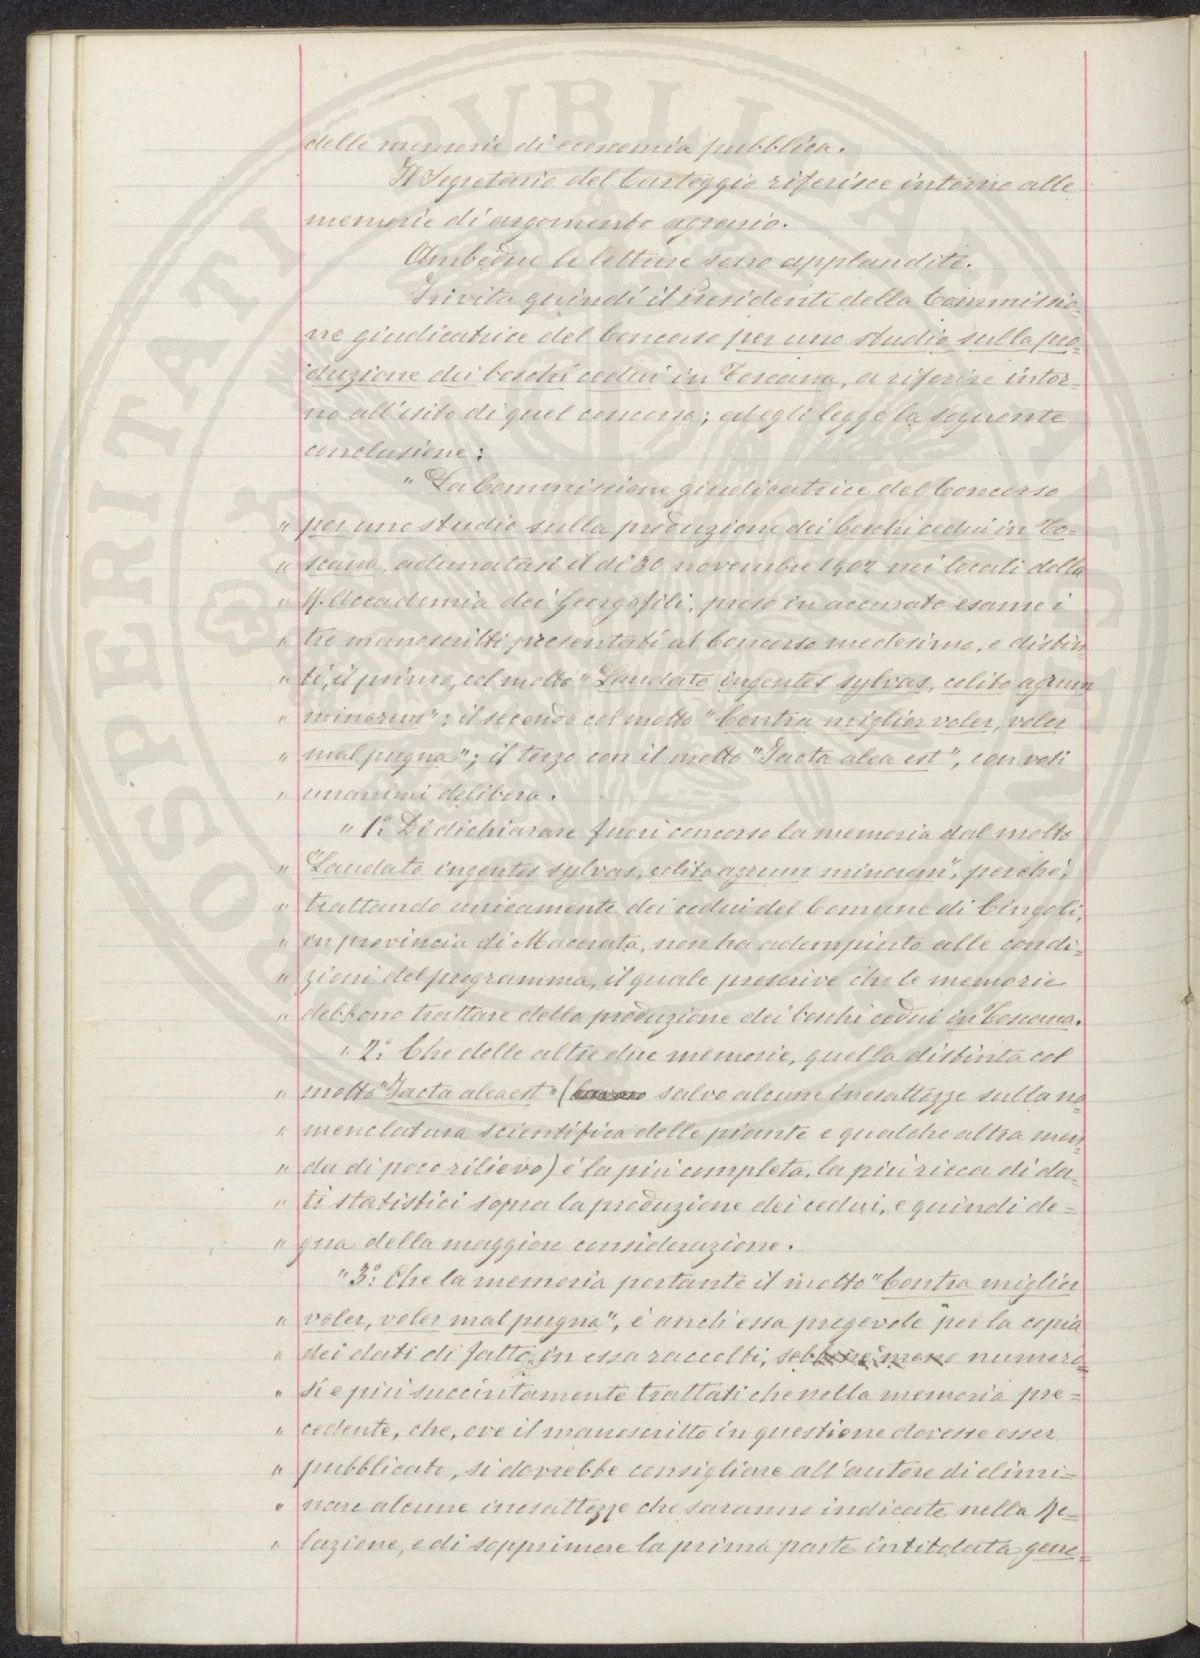 delle memorie di economia pubblica.
Il Segretario del Carteggio riferisce intorno alle
memorie di argomento agrario.
Ambedue le letture sono applaudite.
Invita quindi il Presidente della Commissio-
ne giudicatrice del Concorso per uno studio sulla pro-
duzione dei boschi cedui in Toscana, a riferire intor-
no all'esito di quel concorso; ed egli legge la seguente
conclusione:
" La Commissione giudicatrice del Concorso
" per uno studio sulla produzione dei boschi cedui in To-
" scana, adunatasi il dì 30 novembre 1902 nei locali della
" R. Accademia dei Georgofili, preso in accurato esame i
" tre manoscritti presentati al Concorso medesimo, e distin-
" ti, il primo, col motto "Laudato ingentes sylvas, colito agrum
" minorem"; il secondo col motto "Contra miglior voler, voler
" mal pugna"; il terzo con il motto "Jacta alea est", con voti
" unanimi delibera.
" 1.º Di dichiarare fuori concorso la memoria dal motto
" "Laudato ingentes sylvas, colito agrum minorem", perchè,
" trattando unicamente dei cedui del Comune di Cingoli,
" in provincia di Macerata, non ha adempiuto alle condi-
" zioni del programma, il quale prescrive che le memorie
" debbono trattare della produzione dei boschi cedui in Toscana.
" 2.º Che delle altre due memorie, quella distinta col
" motto "Jacta alea est" ( salvo alcune inesattezze sulla no-
" menclatura scientifica delle piante e qualche altra men-
" da di poco rilievo) è la più completa, la più ricca di da-
" ti statistici sopra la produzione dei cedui, e quindi de-
" gna della maggiore considerazione.
" 3.º Che la memoria portante il motto "Contra miglior
" voler, voler mal pugna", è anch'essa pregevole per la copia
" dei dati di fatto in essa raccolti, sebbene meno numero-
" si e più succintamente trattati che nella memoria pre-
" cedente, che, ove il manoscritto in questione dovesse esser
" pubblicato, si dovrebbe consigliare all'autore di elimi-
" nare alcune inesattezze che saranno indicate nella Re-
" lazione, e di sopprimere la prima parte intitolata gene-
PUBLICAE
PROSPERITATI